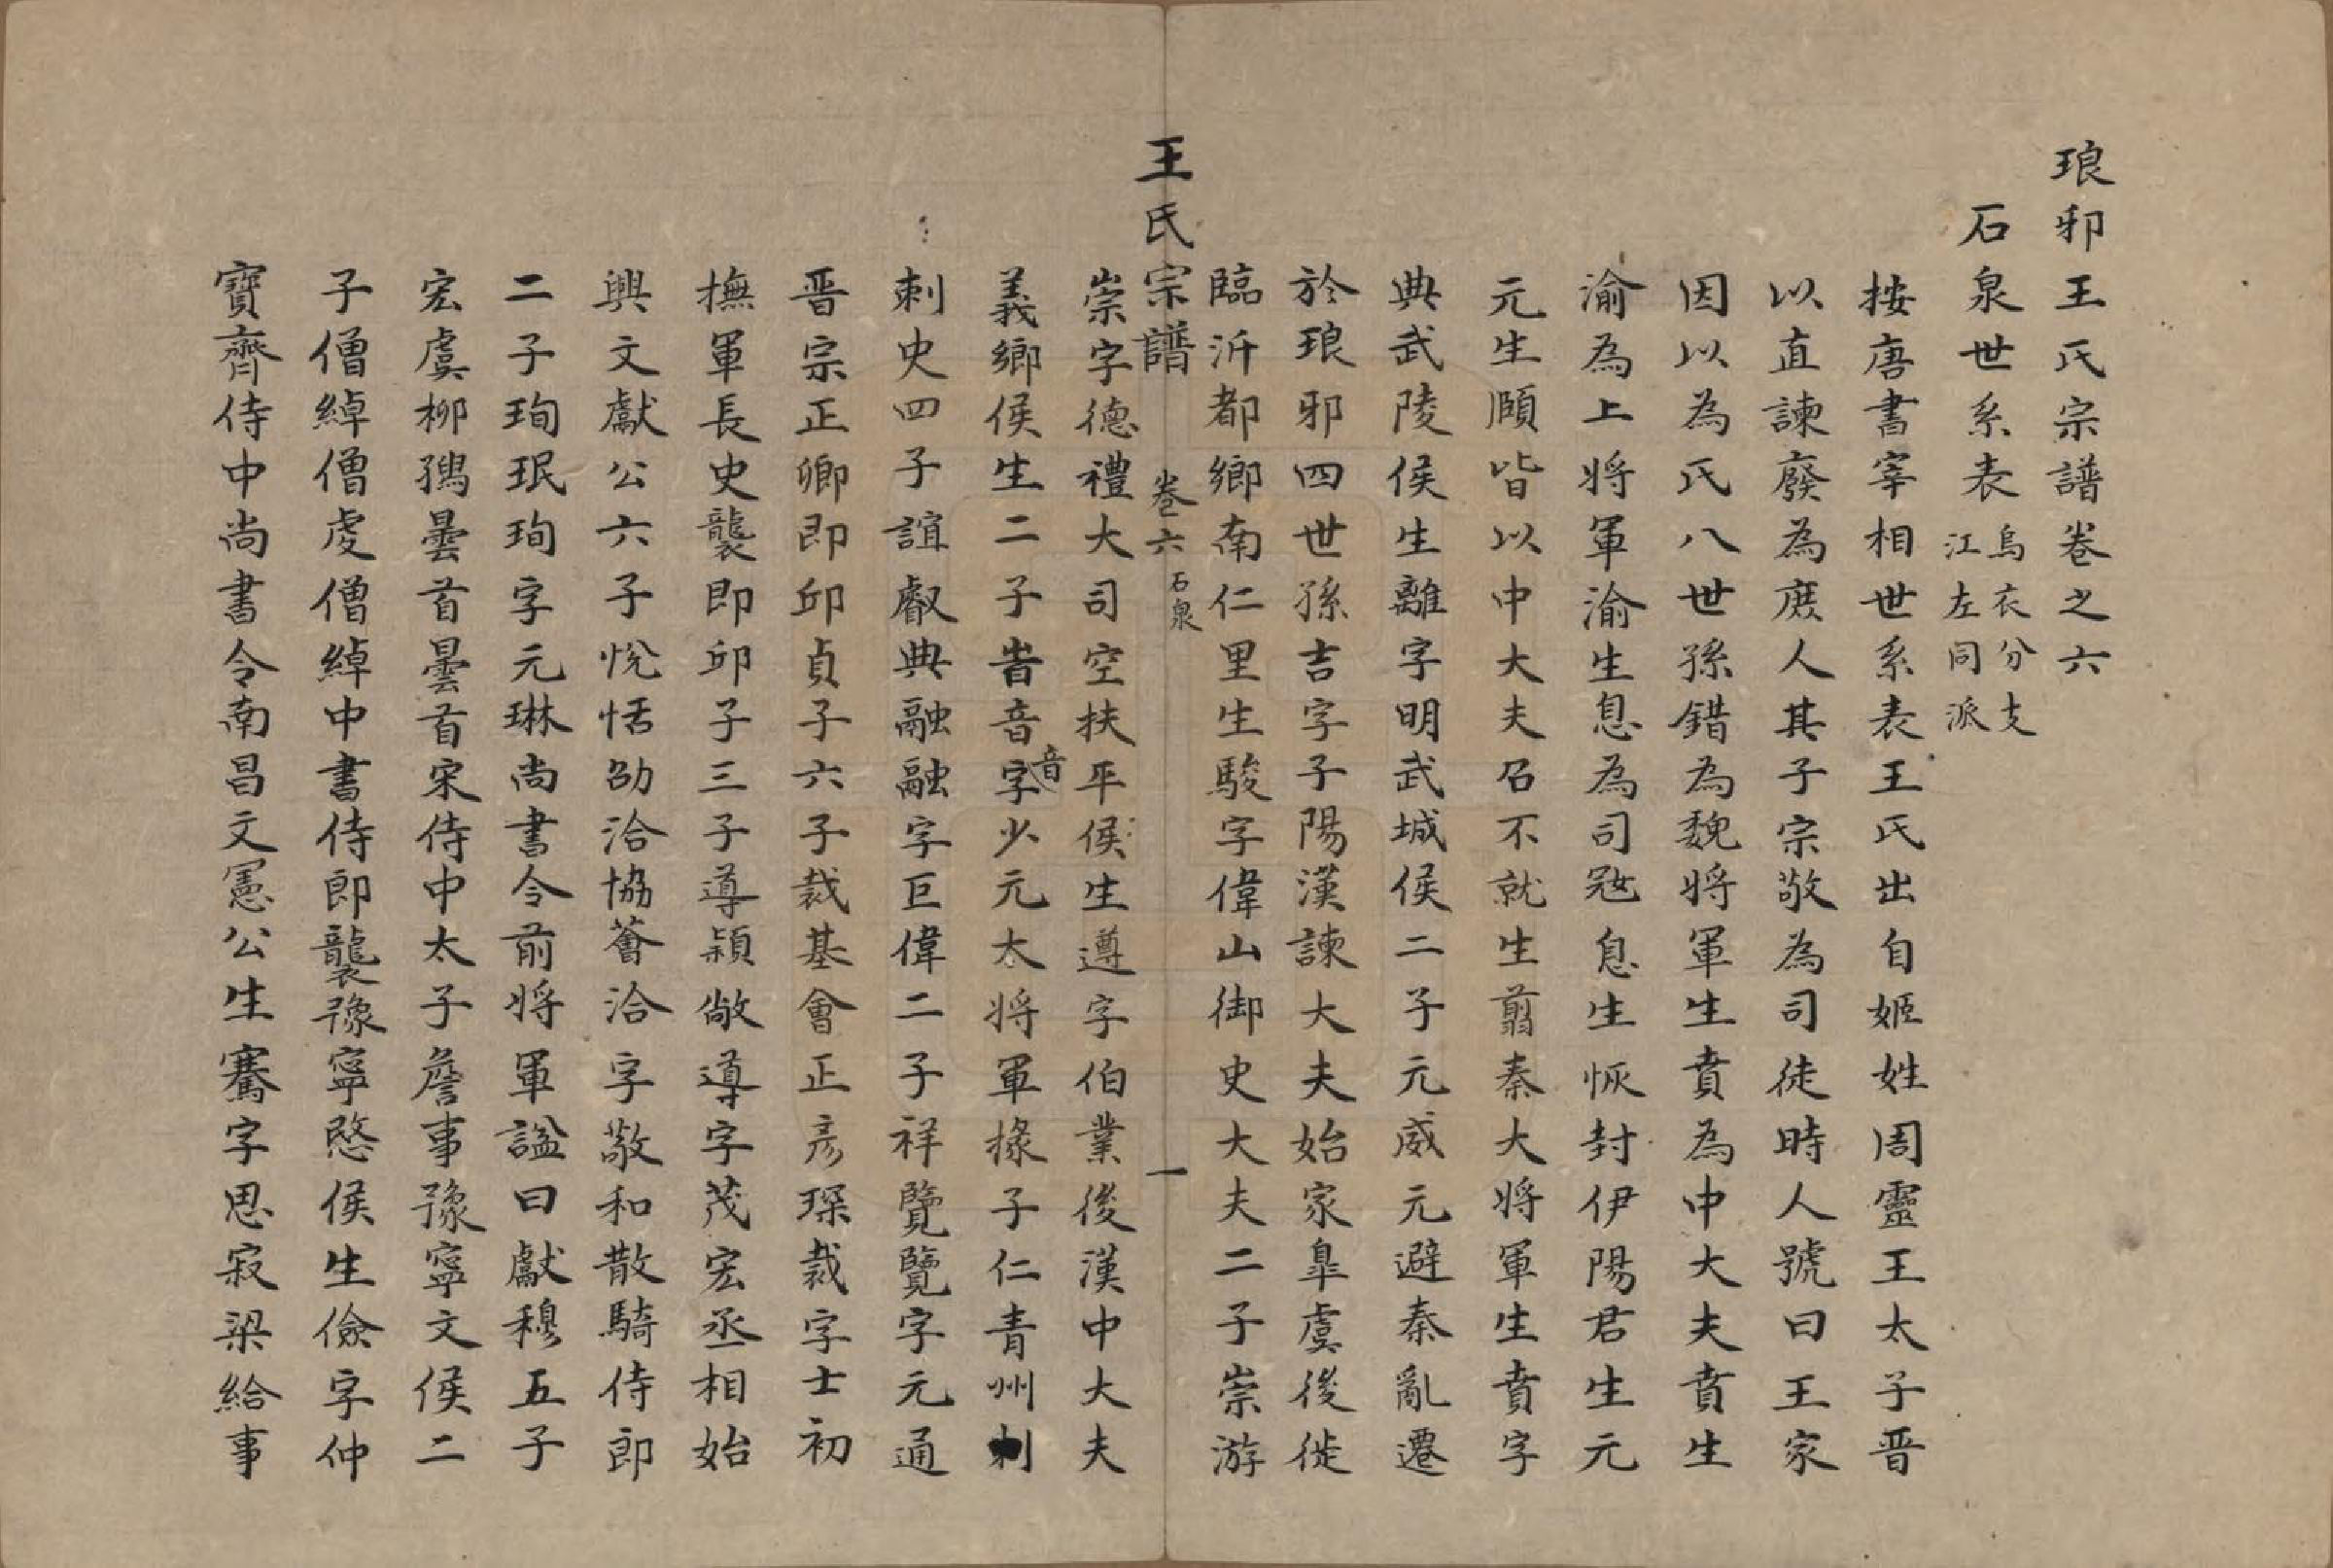 琅邪王氏宗譜卷之六
石泉世系表烏衣分支江左同派
按唐書宰相世系表王氏出自姬姓周靈王太子晉
以直諫廢為庶人其子宗敬為司徒時人號曰王家
因以為氏八世孫錯為魏將軍生賁為中大夫賁生
渝為上將軍渝生息為司寇息生恢封伊陽君生元
元生頤皆以中大夫召不就生翦秦大將軍生賁字
典武陵侯生離字明武城侯二子元威元避秦亂遷
於琅邪四世孫吉字子陽漢諫大夫始家皐虞後徙
臨沂都鄉南仁里生駿字偉山御史大夫二子崇游
王氏宗譜 卷六 石泉 一
崇字德禮大司空扶平侯生遵字伯業後漢中大夫
義鄉侯生二子訔音音字少元大將軍掾子仁青州刺
刺史四子誼叡典融融字巨偉二子祥覽覽字元通
晉宗正卿即邱貞子六子裁基會正彥琛裁字士初
撫軍長史襲即邱子三子導穎敞導字茂宏丞相始
興文獻公六子悅恬劭洽協薈洽字敬和散騎侍郎
二子珣珉珣字元琳尚書令前將軍諡曰獻穆五子
宏虞柳孺曇首曇首宋侍中太子詹事豫寧文侯二
子僧綽僧虔僧綽中書侍郎襲豫寧愍侯生儉字仲
寶齊侍中尚書令南昌文憲公生騫字思寂梁給事